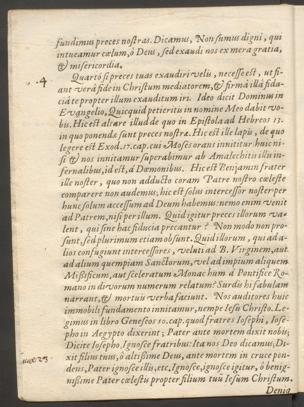 fundimus preces nostras. Dicamus, Non sumus digni, qui
intueamur cælum, ô Deus, sed exaudi nos ex mera gratia,
& misericordia.
.4 Quartò si preces tuas exaudiri velis, necesse est, ut fi-
ant verâ fide in Christum mediatorem, & firmâ illâ fidu-
ciâ te propter illum exauditum iri. Ideo dicit Dominus in
Evangelio, Quicquid petieritis in nomine Meo dabit vo-
bis. Hic est altare illud de quo in Epistola ad Hebreos 13.
in quo ponendæ sunt preces nostræ. Hic est ille lapis, de quo
legere est Exod. 17. cap. cui Moses orans innititur huic ni-
si & nos innitamur superabimur ab Amalechitis illis in-
fernalibus, id est, à Dæmonibus. Hic est Benjamin frater
ille noster, quo non adducto coram Patre nostro cælesti
comparere non audemus; hic est solus intercessor noster per
hunc solum accessum ad Deum habemus: nemo enim venit
ad Patrem, nisi per illum. Quid igitur preces illorum va-
lent, qui sine hac fiducia precantur? Non modo non pro-
sunt, sed plurimum etiam obsunt. Quid illorum, qui ad a-
lios confugiunt intercessores, veluti ad B. Virginem, aut
ad alium quempiam Sanctorum, vel ad impium aliquem
Missificum, aut sceleratum Monachum à Pontifice Ro-
mano in divorum numerum relatum? Surdis hi fabulam
narrant, & mortuis verba faciunt. Nos auditores huic
immobili fundamento innitamur, nempe Iesu Christo. Le-
gimus in libro Geneseos 50. cap. quod fratres Iosephi, Iose-
pho in Aegypto dixerint; Pater ante mortem dixit nobis;
Dicite Iosepho, Ignosce fratribus: Ita nos Deo dicamus, Di-
xit filius tuus, ô altissime Deus, ante mortem in cruce pen-
dens, Pater ignosce illis, etc, Ignosce, ignosce igitur, ô benig-
nissime Pater cælestis propter filium tuum Iesum Christum.
Deniq